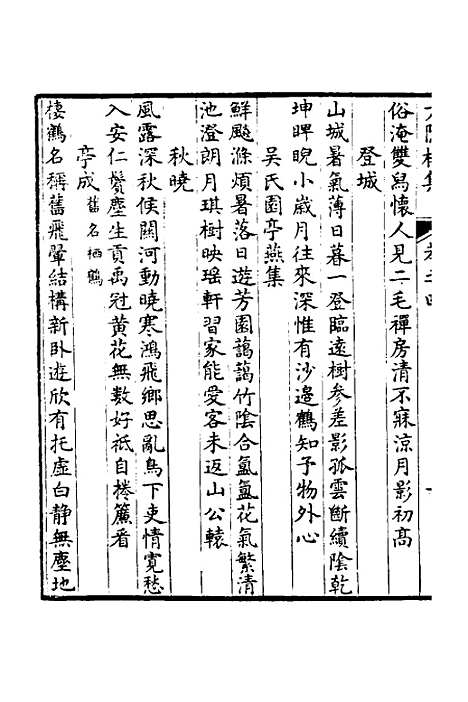 俗淹雙舄懷人見二毛禪房清不寐涼月影初高
登城
山城暑氣薄日暮一登臨遠樹參差影孤雲斷續陰乾
坤睥睨小歲月往來深惟有沙邊鶴知予物外心
吳氏園亭燕集
鮮飈滌煩暑落日遊芳園藹藹竹陰合氳氳花氣繁清
池澄朗月琪樹映瑶軒習家能愛客未返山公轅
秋曉
風露深秋候關河動曉寒鴻飛鄉思亂烏下吏情寛愁
入安仁鬢塵生貢禹冠黄花無數好祇自捲簾看
亭成舊名栖鶴
棲鶴名稱舊飛翬結構新卧遊欣有托虚白静無塵地